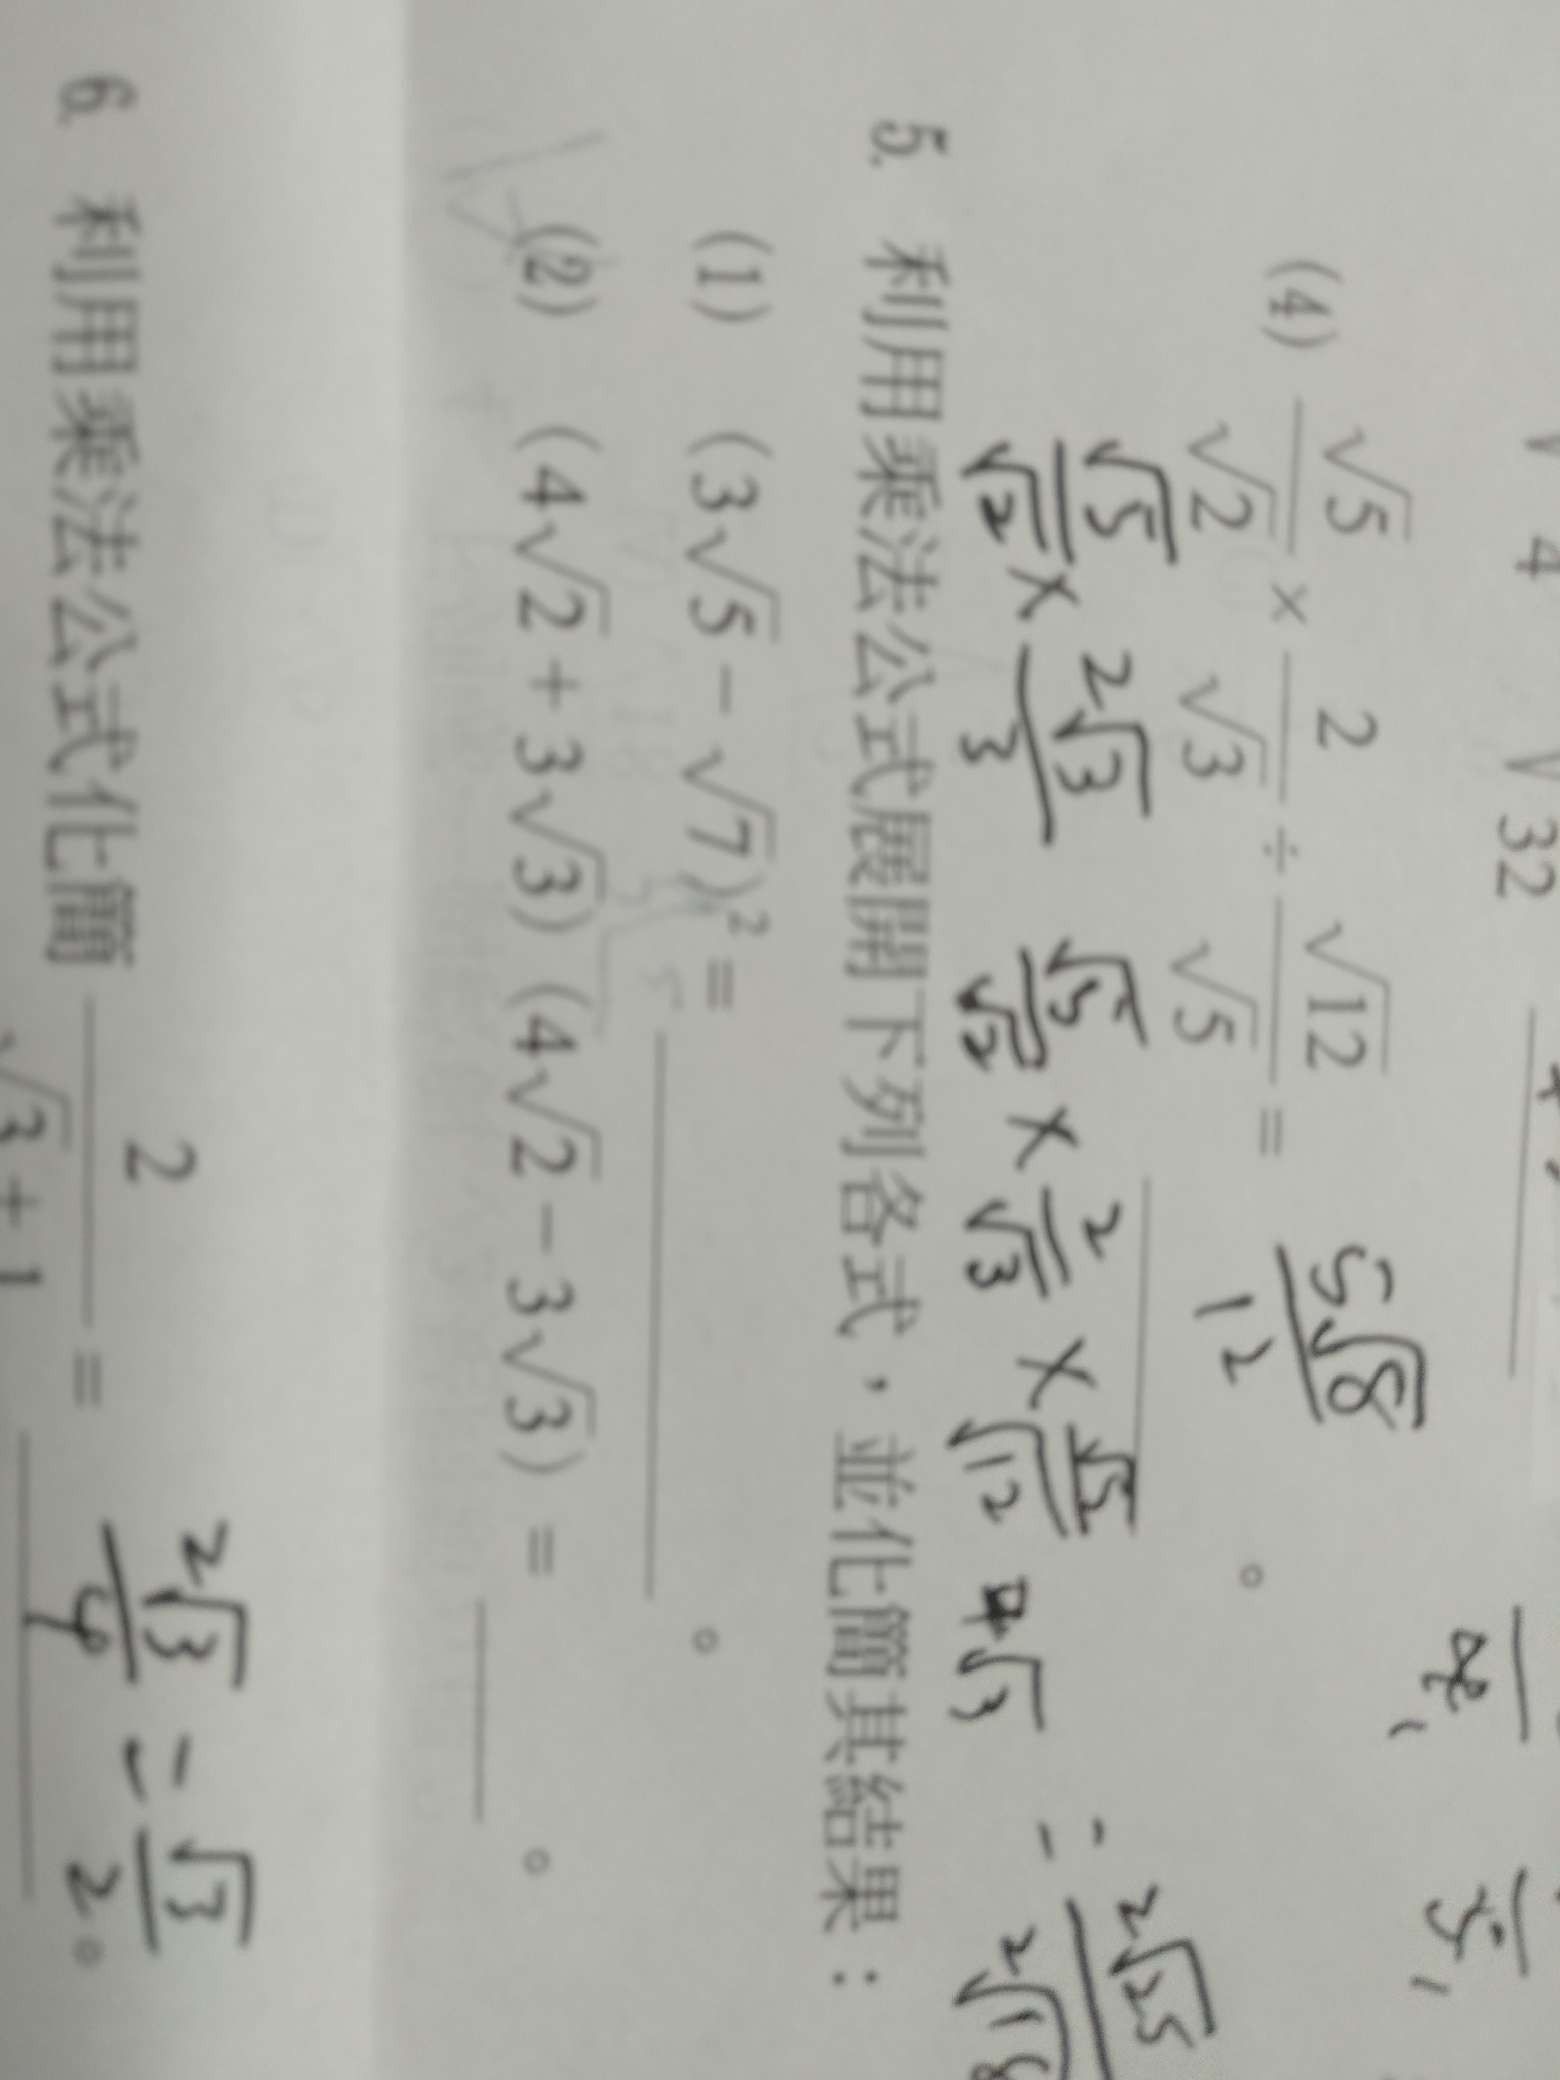 √4 √32
(4) √5/√2 × 2/√3 ÷ √12/√5 = 5√8/12 。
√5/√2 × 2√3/3 √5/√2 × 2/√3 × √5/√12 √3 = 2√25/2√18
5. 利用乘法公式展開下列各式，並化簡其結果：
(1) (3√5 − √7)² = 。
(2) (4√2 + 3√3)(4√2 − 3√3) = 。
6. 利用乘法公式化簡 2/√3+1 = = √3/2 。